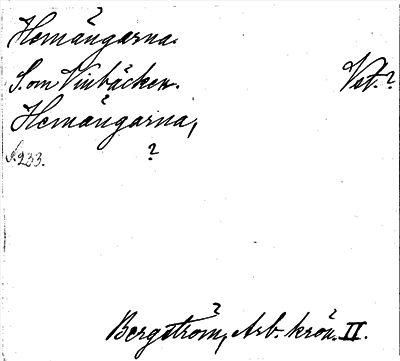 Hemängarna.
S. om Vinbäcken. Vet.?
Hemängarna,
s. 233. ?
Bergström, Arb. krön. II.